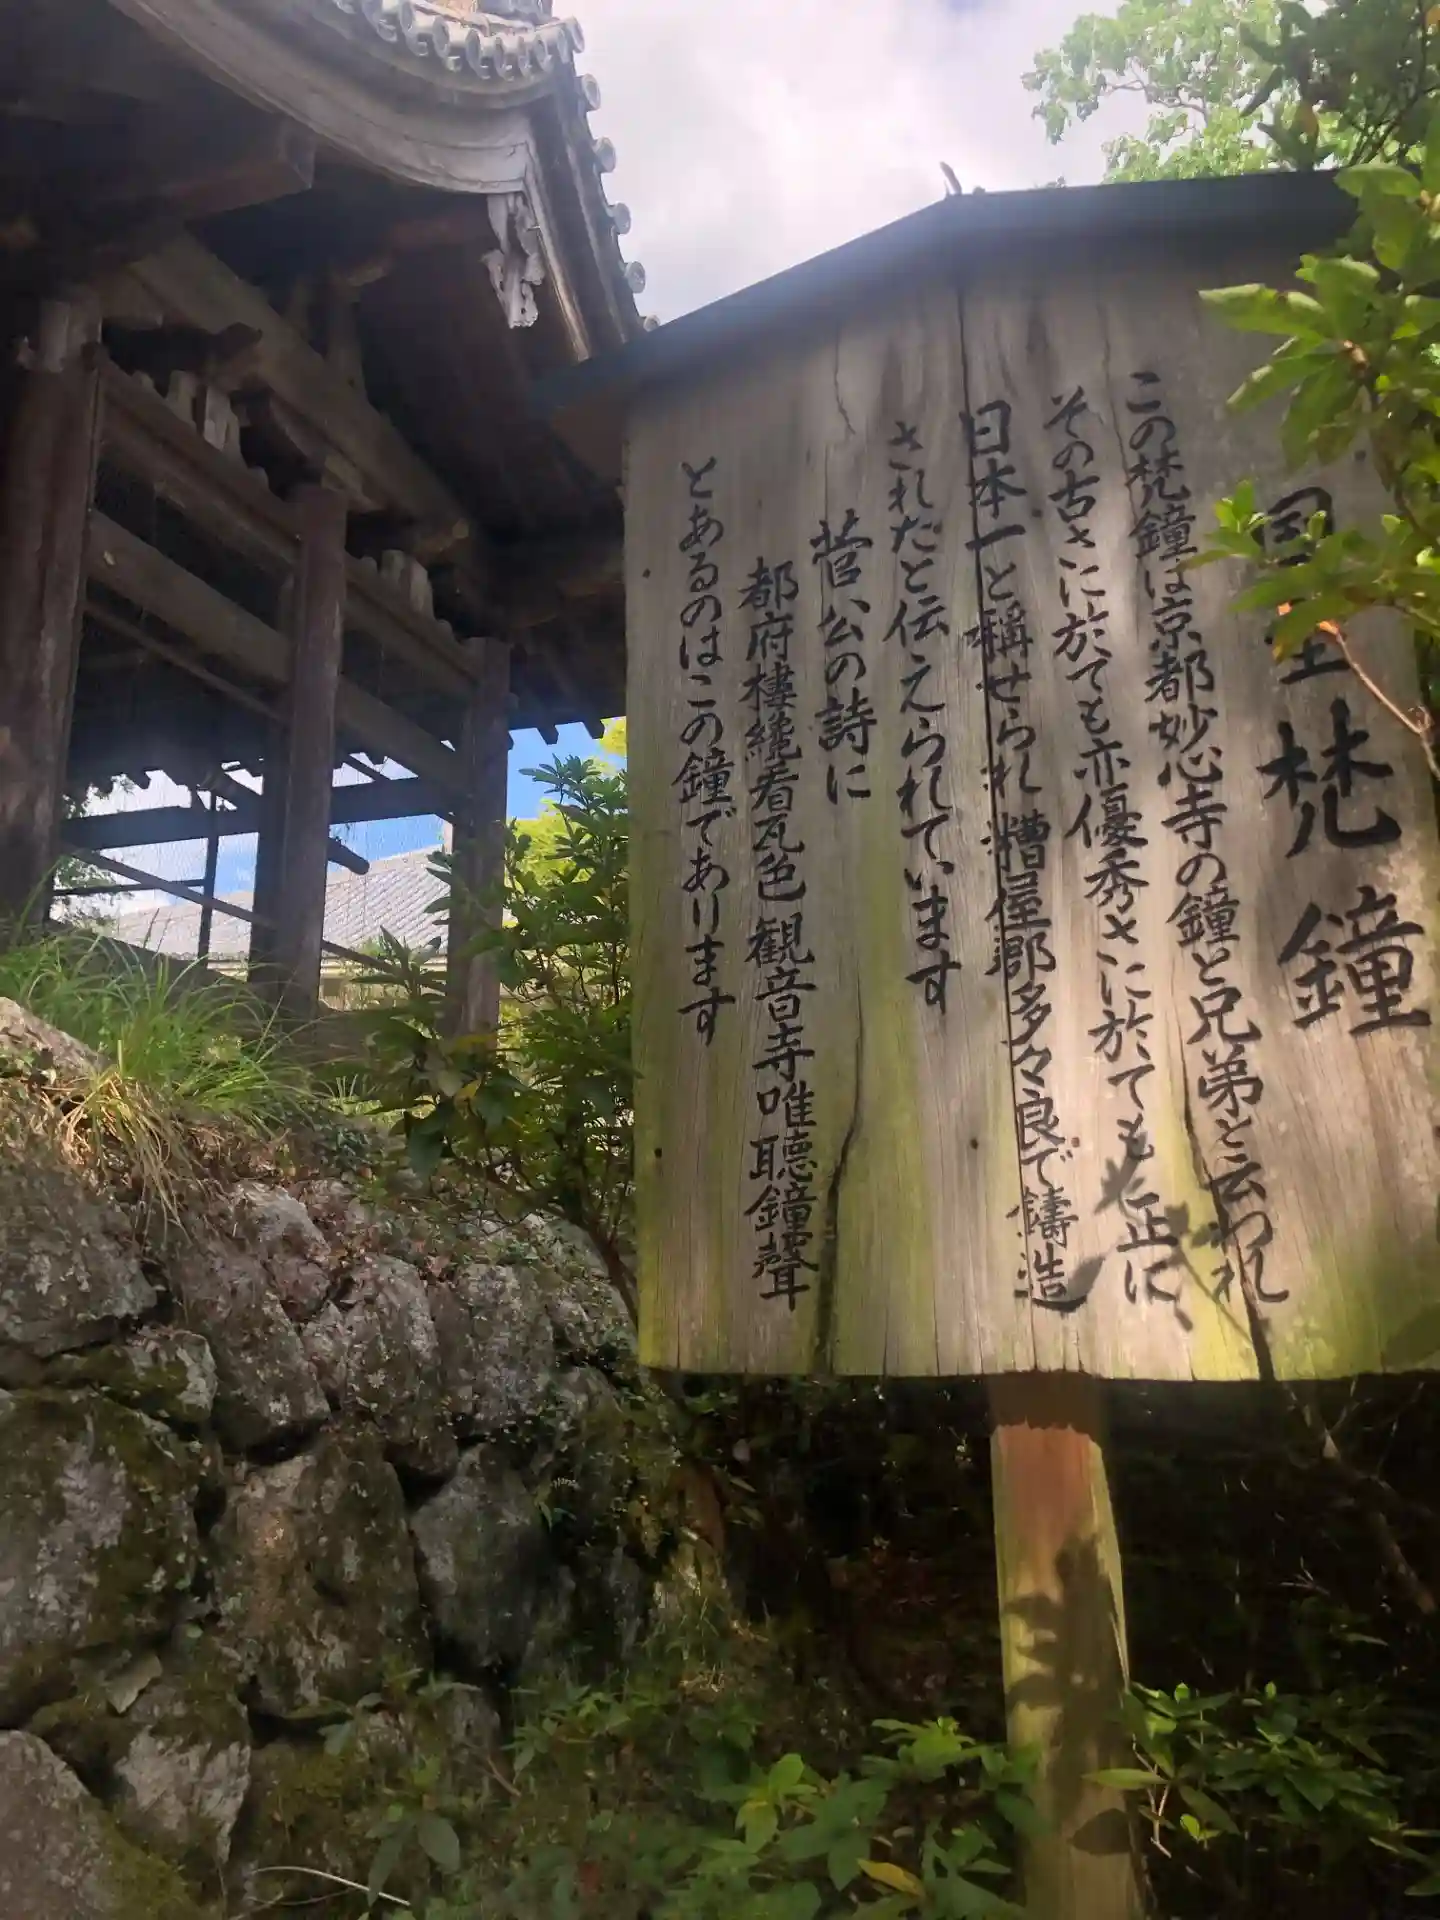 梵鐘
この梵鐘は京都妙心寺の鐘と兄弟と云われ
その古さに於ても亦優秀さに於ても正に、
日本一と稱せられ糟屋郡多々良で鋳造
されたと伝えられています
菅公の詩に
都府樓纔看瓦色 観音寺唯聴鐘聲
とあるのはこの鐘であります